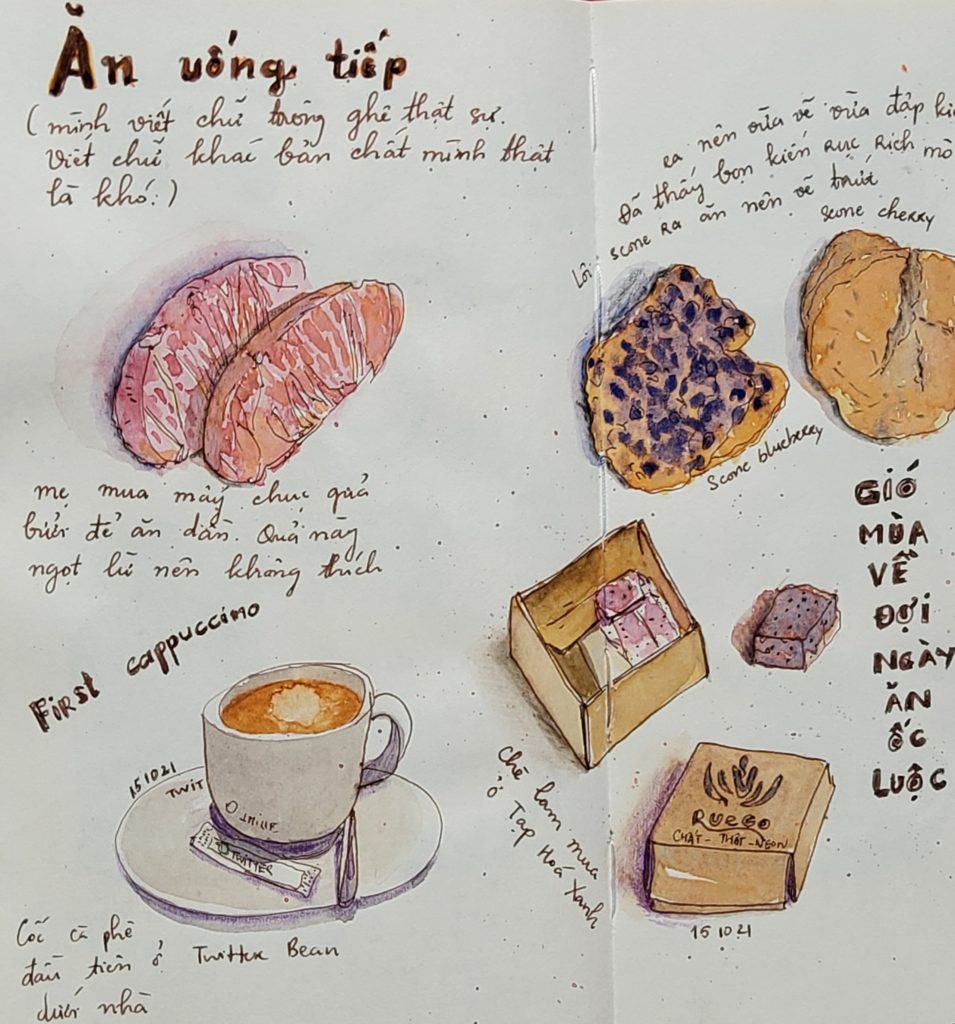 Ăn uống tiếp
(mình viết chữ trông ghê thật sự.
Viết chữ khác bản chất mình thật
là khó.)
mẹ mua mấy chục quả
bưởi để ăn dần. Quả này
ngọt lừ nên không thích
First cappuccino
151021
TWIT
TWITTER
Cốc cà phê
đầu tiên ở Twitter Bean
dưới nhà
ra nên vừa vẽ vừa đập
Đã thấy bọn kiến rục rịch mò
scone ra ăn nên vẽ trước
Lôi
scone cherry
Scone blueberry
GIÓ
MÙA
VỀ
ĐỢI
NGÀY
ĂN
ỐC
LUỘC
Chè lam mua
ở Tạp Hoá Xanh
RUEGO
CHẤT - THẬT - NGON
151021